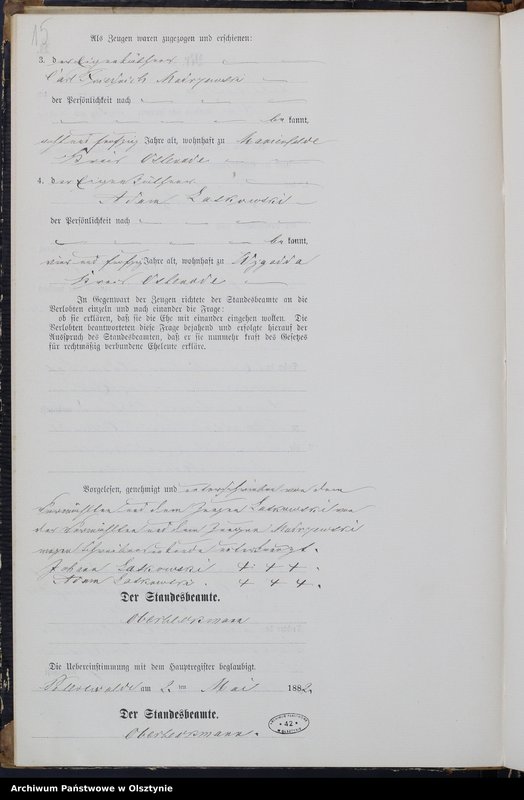 15
Als Zeugen waren zugezogen und erschienen:
3. der Eigenkäthner
Carl Friedrich
der Persönlichkeit nach
be kannt,
acht und fünfzig Jahre alt, wohnhaft zu Marienfelde
Kreis Osterode
4. der Eigenkäthner
Adam Latkowski
der Persönlichkeit nach
be kannt,
vier und fünfzig Jahre alt, wohnhaft zu Wygodda
Kreis Osterode
In Gegenwart der Zeugen richtete der Standesbeamte an die
Verlobten einzeln und nach einander die Frage:
ob sie erklären, daß sie die Ehe mit einander eingehen wollen. Die
Verlobten beantworteten diese Frage bejahend und erfolgte hierauf der
Ausspruch des Standesbeamten, daß er sie nunmehr kraft des Gesetzes
für rechtmäßig verbundene Eheleute erkläre.
Vorgelesen, genehmigt und unterschrieben von dem
Vermählten und dem Zeugen Latkowski von
der Vermählten und dem Zeugen
wegen Schreibensunkunde unterkreuzt.
Johann Latkowski + + + .
Adam Latkowski . + + + .
Der Standesbeamte.
Die Uebereinstimmung mit dem Hauptregister beglaubigt.
am 2. ten Mai 1882.
Der Standesbeamte.
42
Archiwum Państwowe w Olsztynie